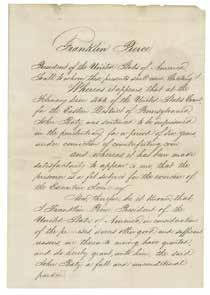 Franklin Pierce,
President of the United States of America,
To all to whom these presents shall come, Greeting:
Whereas it appears that at the
February term 1854 of the United States Court
for the Eastern District of Pennsylvania
John was sentenced to be imprisoned
in the penitentiary for a period of two years
under conviction of counterfeiting coin
And whereas it has been made
satisfactorily to appear to me that the
prisoner is a fit subject for the exercise of
the Executive clemency
Now, therefore, be it known, that
I Franklin Pierce President of the
United States of America, in consideration
of the premises divers other good and sufficient
reasons me thereunto moving have granted,
and do hereby grant unto him the said
John a full and unconditional
pardon